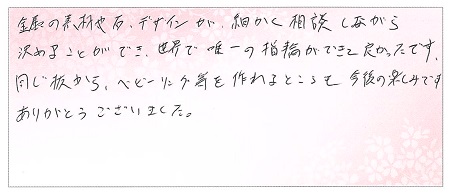 金属の素材や石、デザインが、細かく相談しながら
決めることができ、世界で唯一の指輪ができて良かったです。
同じ板から、ベビーリング等を作れるところも今後の楽しみです
ありがとうございました。